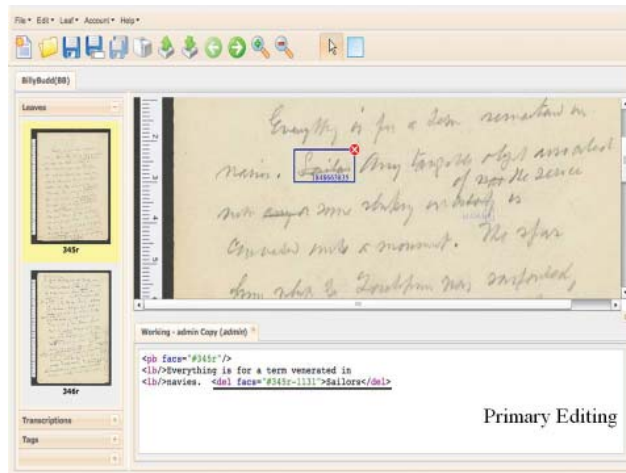 File Edit Leaf Account Help
BillyBudd(BB)
Leaves
345r
346r
Transcriptions
Tags
Everything is for a term remarked in
navies. Sailor Any tangible object associated
of the service
not any or some striking incident is
converted into a monument. The spar
from which the Foretopman was suspended,
Working - admin Copy (admin)
<pb facs="#345r"/>
<lb/>Everything is for a term venerated in
<lb/>navies. <del facs="#345r-1131">Sailors</del>
Primary Editing